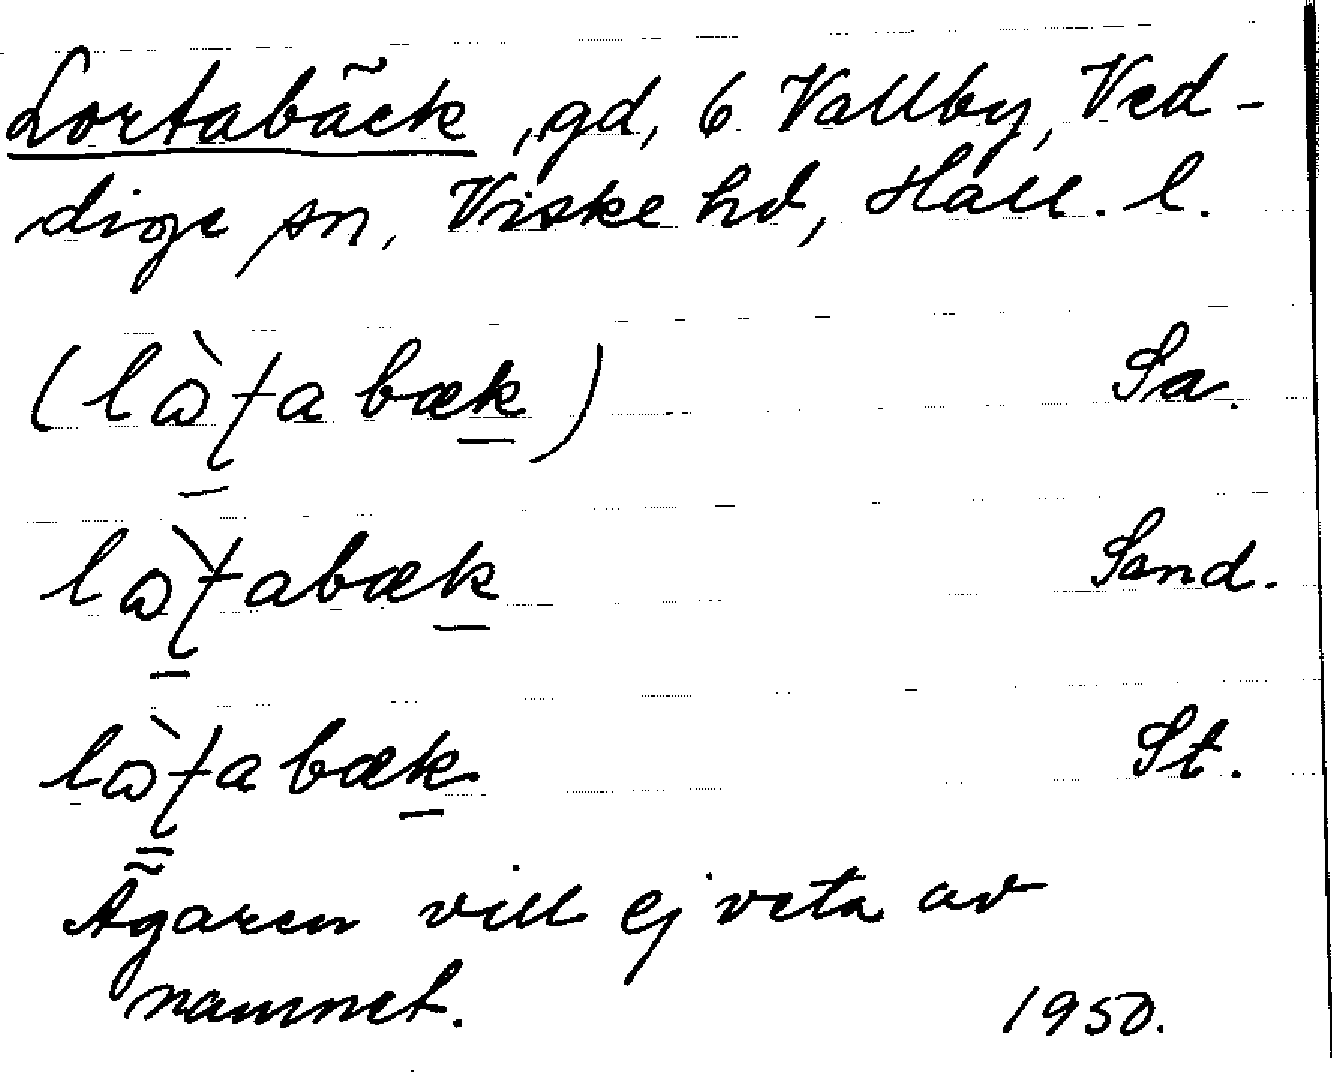 Lortabäck, gd, 6 Vallby, Ved-
dige sn, Viske hd, Hall. l.
(lòʈabæk) Sa.
lòʈabæk Sand.
lòʈabæk St.
Ägaren vill ej veta av
namnet. 1950.